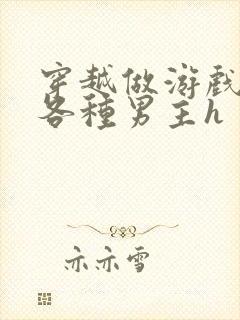 穿越做游戲
各種男主h
亦亦雪